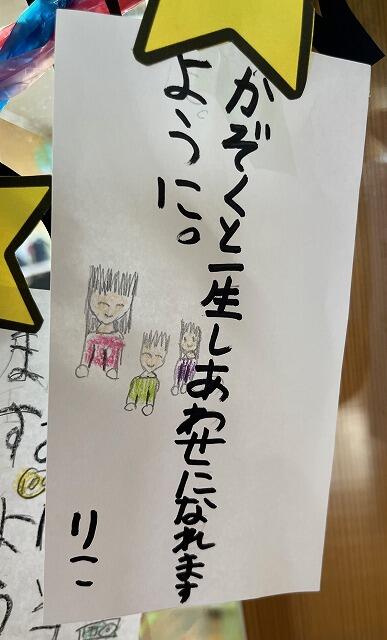 かぞくと一生しあわせになれます
ように。
りこ
ます